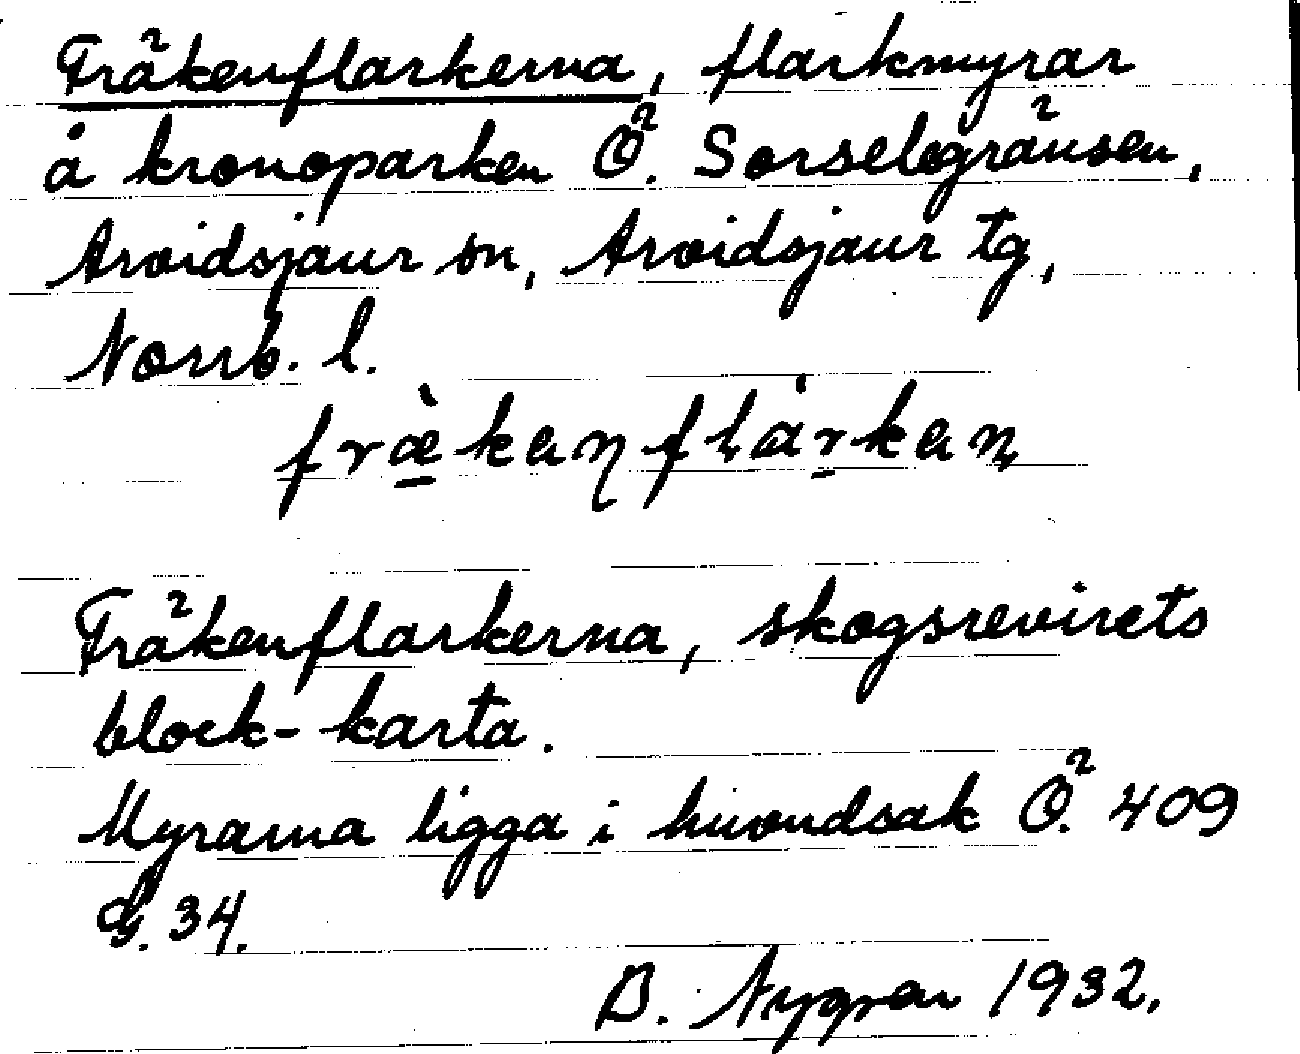 Fräkenflarkerna, flarkmyrar
å kronoparken Ö. Sorselegränsen,
Arvidsjaur sn, Arvidsjaur tg,
Norrb. l.
fræ̀kenflárken
Fräkenflarkerna, skogsrevirets
block-karta.
Myrarna ligga i huvudsak Ö. 409
G. 34.
B. Nygren 1932.